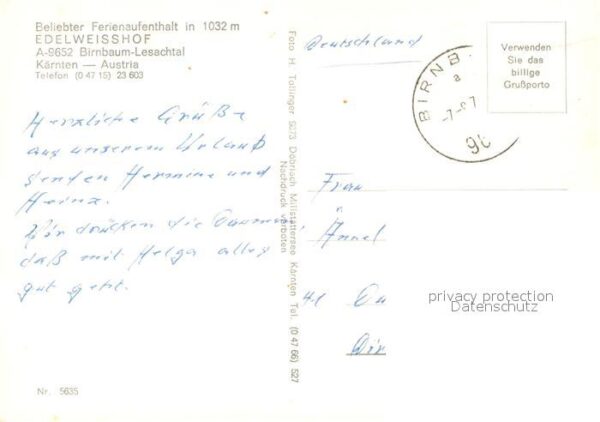 Beliebter Ferienaufenthalt in 1032 m
EDELWEISSHOF
A-9652 Birnbaum-Lesachtal
Kärnten — Austria
Telefon (0 47 15) 23 603
Herzliche Grüße
aus unserem Urlaub
senden Hermine und
Heinz.
Wir drücken die Daumen,
daß mit Helga alles
gut geht.
Nr. 5635
Foto H. Tollinger 9873 Döbriach Millstättersee Kärnten Tel. (0 47 66) 527
Nachdruck verboten
Deutschland
BIRNB
a
96
Verwenden
Sie das
billige
Grußporto
Frau
Annel
41
privacy protection
Datenschutz